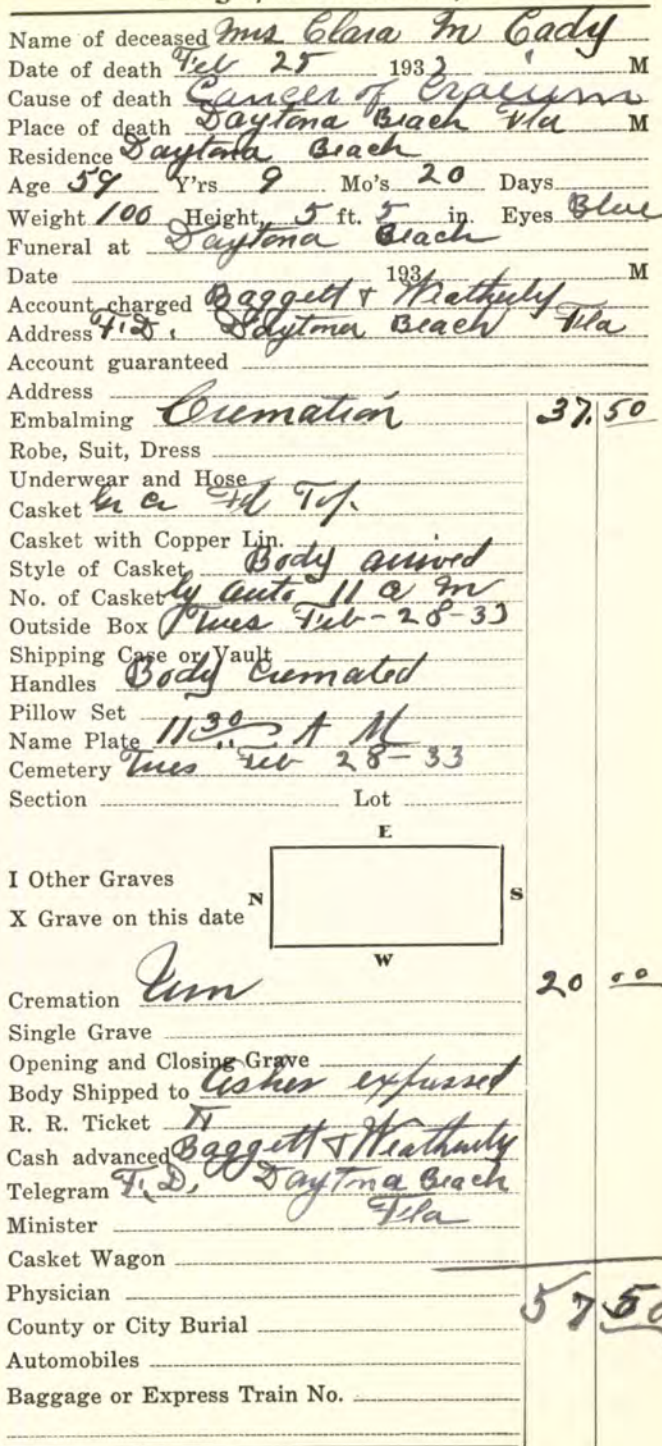 Name of deceased Mrs Clara M Cady
Date of death Feb 25 1933 M
Cause of death Cancer of
Place of death Daytona Beach Fla M
Residence Daytona Beach
Age 59 Y'rs 9 Mo's 20 Days
Weight 100 Height, 5 ft. 5 in. Eyes Blue
Funeral at Daytona Beach
Date 193 M
Account charged Baggett & Weatherly
Address F.D. Daytona Beach Fla
Account guaranteed
Address
Embalming Cremation 37.50
Robe, Suit, Dress
Underwear and Hose
Casket Top.
Casket with Copper Lin.
Style of Casket Body arrived
No. of Casket by auto 11 a m
Outside Box Tues Feb-28-33
Shipping Case or Vault
Handles Body Cremated
Pillow Set
Name Plate 11 30 A M
Cemetery Tues Feb 28-33
Section Lot
E
I Other Graves
N S
X Grave on this date
W
Cremation Urn 20 00
Single Grave
Opening and Closing Grave
Body Shipped to Ashes expressed
R. R. Ticket
Cash advanced Baggett & Weatherly
Telegram F.D, Daytona Beach
Minister Fla
Casket Wagon
Physician 57 50
County or City Burial
Automobiles
Baggage or Express Train No.